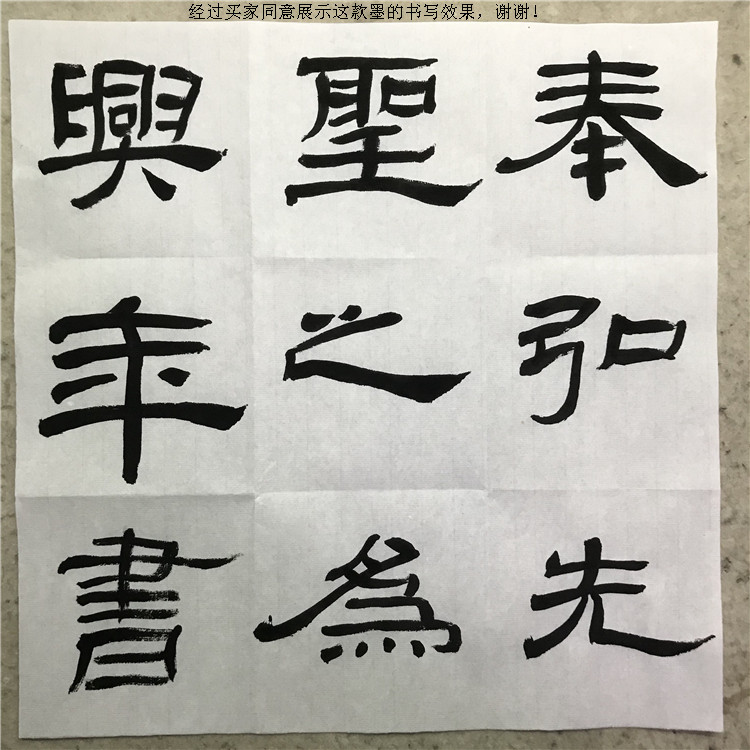 经过买家同意展示这款墨的书写效果，谢谢！
奉弘先
聖之為
興年書